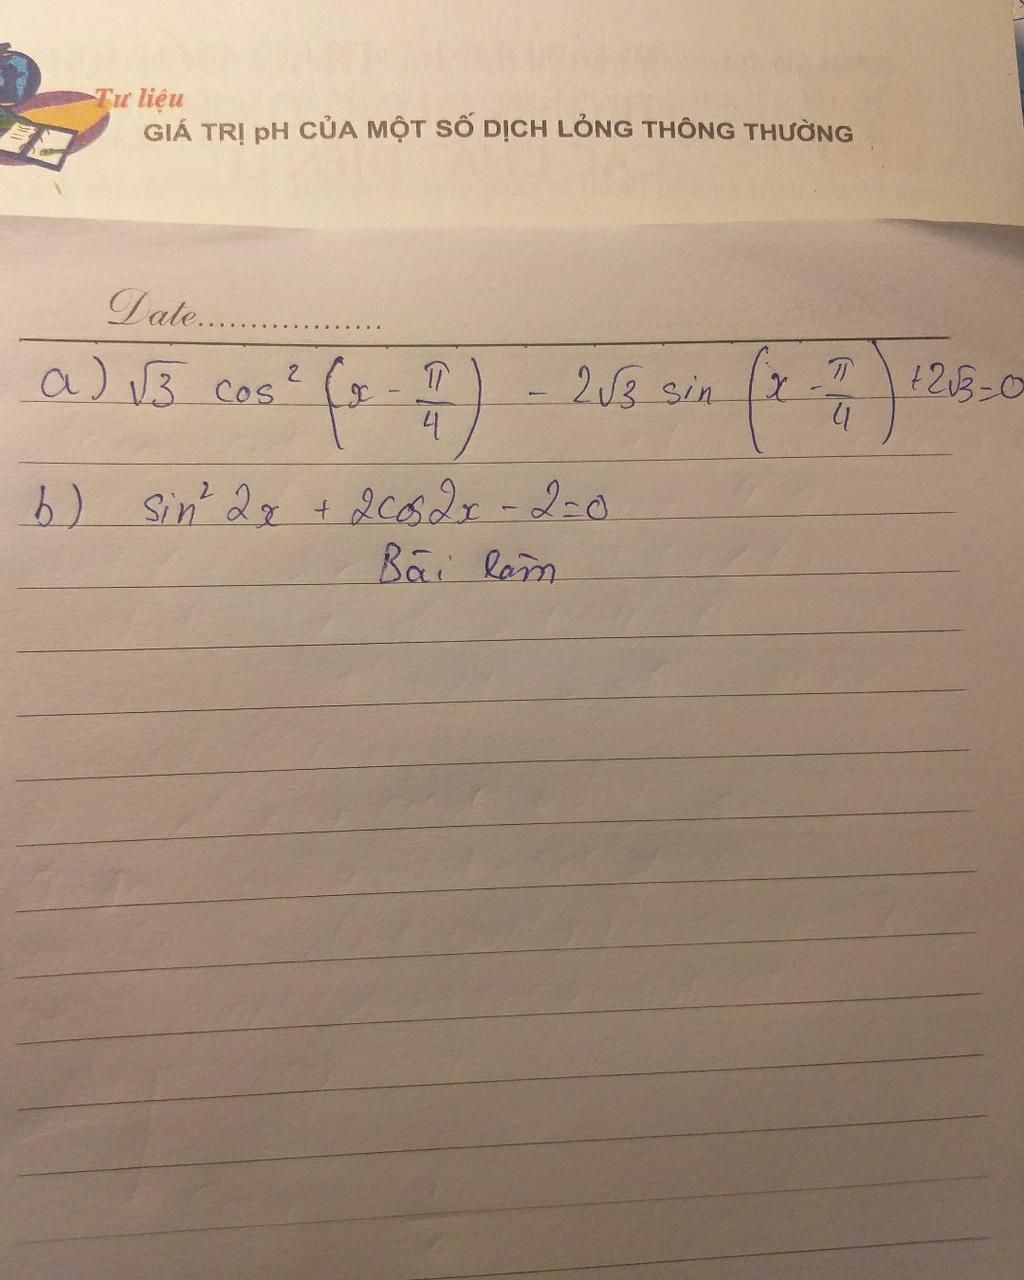 Tư liệu
GIÁ TRỊ pH CỦA MỘT SỐ DỊCH LỎNG THÔNG THƯỜNG
Date...................
a) √3 cos² (x - π/4) - 2√3 sin (x - π/4) + 2√3 = 0
b) sin² 2x + 2cos2x - 2 = 0
Bài làm